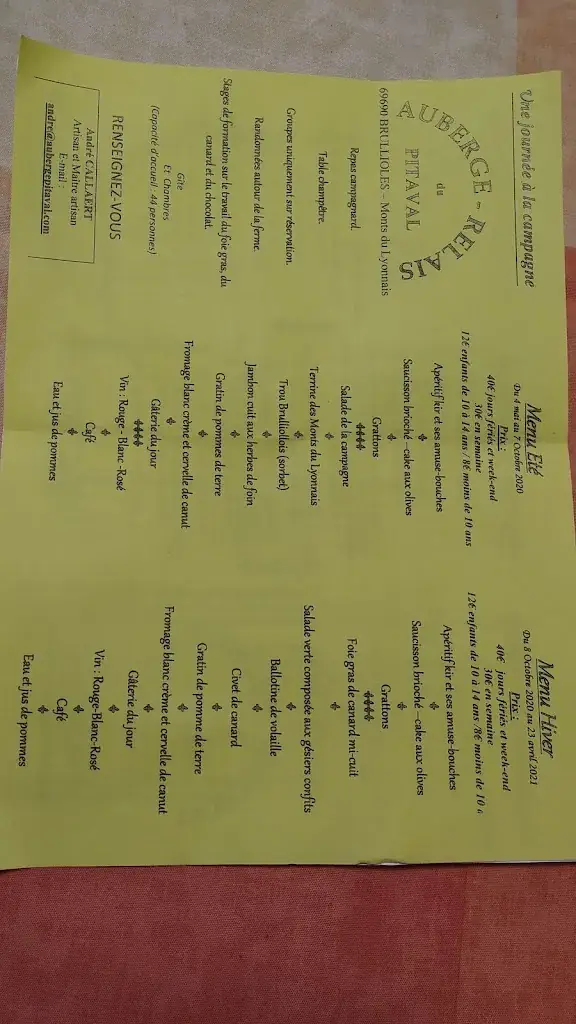 Une journée à la campagne
AUBERGE-RELAIS
du
PITAVAL
69690 BRULLIOLES - Monts du Lyonnais
Repas campagnard.
Table champêtre.
Groupes uniquement sur réservation.
Randonnées autour de la ferme.
Stages de formation sur le travail du foie gras, du
canard et du chocolat.
Gîte
Et Chambres
(Capacité d'accueil : 44 personnes)
RENSEIGNEZ-VOUS
André CALLAERT
Artisan et Maitre artisan
E-mail :
andre@aubergepitaval.com
Menu Eté
Du 4 mai au 7 Octobre 2020
Prix :
40€ jours fériés et week-end
30€ en semaine
12€ enfants de 10 à 14 ans / 8€ moins de 10 ans
Apéritif kir et ses amuse-bouches
Saucisson brioché -cake aux olives
Grattons
Salade de la campagne
Terrine des Monts du Lyonnais
Trou Brulliollois (sorbet)
Jambon cuit aux herbes de foin
Gratin de pommes de terre
Fromage blanc crème et cervelle de canut
Gâterie du jour
Vin : Rouge - Blanc -Rosé
Café
Eau et jus de pommes
Menu Hiver
Du 8 Octobre 2020 au 23 avril 2021
Prix :
40€ jours fériés et week-end
30€ en semaine
12€ enfants de 10 à 14 ans /8€ moins de 10 a
Apéritif kir et ses amuse-bouches
Saucisson brioché -cake aux olives
Grattons
Foie gras de canard mi-cuit
Salade verte composée aux gésiers confits
Ballotine de volaille
Civet de canard
Gratin de pomme de terre
Fromage blanc crème et cervelle de canut
Gâterie du jour
Vin : Rouge-Blanc-Rosé
Café
Eau et jus de pommes